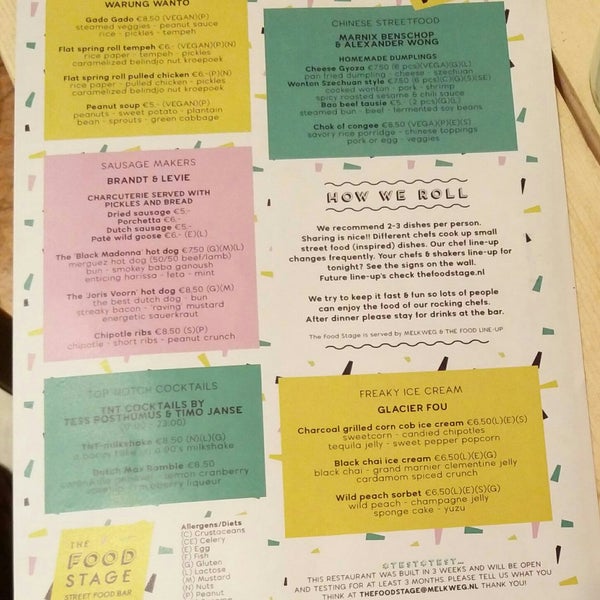 WARUNG WANTO
Gado Gado €8,50 (VEGAN)(P)
steamed veggies - peanut sauce
rice - pickles - tempeh
Flat spring roll tempeh €6,- (VEGAN)(P)(N)
rice paper - tempeh - rice - pickles
caramelized belindjo nut kroepoek
Flat spring roll pulled chicken €6,- (P)(N)
rice paper - pulled chicken - pickles
caramelized belindjo nut kroepoek
Peanut soup €5,- (VEGAN)(P)
peanuts - sweet potato - plantain
bean - sprouts - green cabbage
SAUSAGE MAKERS
BRANDT & LEVIE
CHARCUTERIE SERVED WITH
PICKLES AND BREAD
Dried sausage €5,-
Porchetta €6,-
Dutch sausage €5,-
Paté wild goose €6,- (E)(L)
The 'Black Madonna' hot dog €7,50 (G)(M)(L)
merguez hot dog (50/50 beef/lamb)
bun - smokey baba ganoush
enticing harissa - feta - mint
The 'Joris Voorn' hot dog €8,50 (G)(M)
the best dutch dog - bun
streaky bacon - raving mustard
energetic sauerkraut
Chipotle ribs €8,50 (S)(P)
chipotle - short ribs - peanut crunch
TOP NOTCH COCKTAILS
TNT COCKTAILS BY
TESS POSTHUMUS & TIMO JANSE
TNT-milkshake €8,50 (N)(L)(G)
a boozy take on a 90's milkshake
Dutch Max Bamble €8,50
lemon cranberry
liqueur
THE
FOOD
STAGE
STREET FOOD BAR
Allergens/Diets
(C) Crustaceans
(CE) Celery
(E) Egg
(F) Fish
(G) Gluten
(L) Lactose
(M) Mustard
(N) Nuts
(P) Peanut
CHINESE STREETFOOD
MARNIX BENSCHOP
& ALEXANDER WONG
HOMEMADE DUMPLINGS
Cheese Gyoza €7,50 (6 pcs)(VEG)(G)(L)
pan fried dumpling - cheese - szechuan
Wonton Szechuan style €7,50 (6 pcs)(C)(G)(S)(SE)
cooked wonton - pork - shrimp
spicy roasted sesame & chili sauce
Bao beef tausie €5,- (2 pcs)(G)(L)
steamed bun - beef - fermented soy beans
Chok of congee €6,50 (VEG)(P)(E)(S)
savory rice porridge - chinese toppings
pork or egg - veggies
HOW WE ROLL
We recommend 2-3 dishes per person.
Sharing is nice!! Different chefs cook up small
street food (inspired) dishes. Our chef line-up
changes frequently. Your chefs & shakers line-up for
tonight? See the signs on the wall.
Future line-up's check thefoodstage.nl
We try to keep it fast & fun so lots of people
can enjoy the food of our rocking chefs.
After dinner please stay for drinks at the bar.
The Food Stage is served by MELKWEG & THE FOOD LINE-UP
FREAKY ICE CREAM
GLACIER FOU
Charcoal grilled corn cob ice cream €6,50(L)(E)(S)
sweetcorn - candied chipotles
tequila jelly - sweet pepper popcorn
Black chai ice cream €6,50(L)(E)(G)
black chai - grand marnier clementine jelly
cardamom spiced crunch
Wild peach sorbet €6,50(L)(E)(S)(G)
wild peach - champagne jelly
sponge cake - yuzu
#TEST#TEST...
THIS RESTAURANT WAS BUILT IN 3 WEEKS AND WILL BE OPEN
AND TESTING FOR AT LEAST 3 MONTHS. PLEASE TELL US WHAT YOU
THINK AT THEFOODSTAGE@MELKWEG.NL THANK YOU!